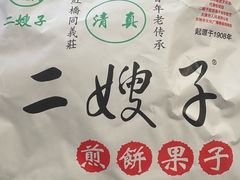 清真
二嫂子
紅橋同義莊
百年老传承
起源于1908年
二嫂子®
煎餅果子